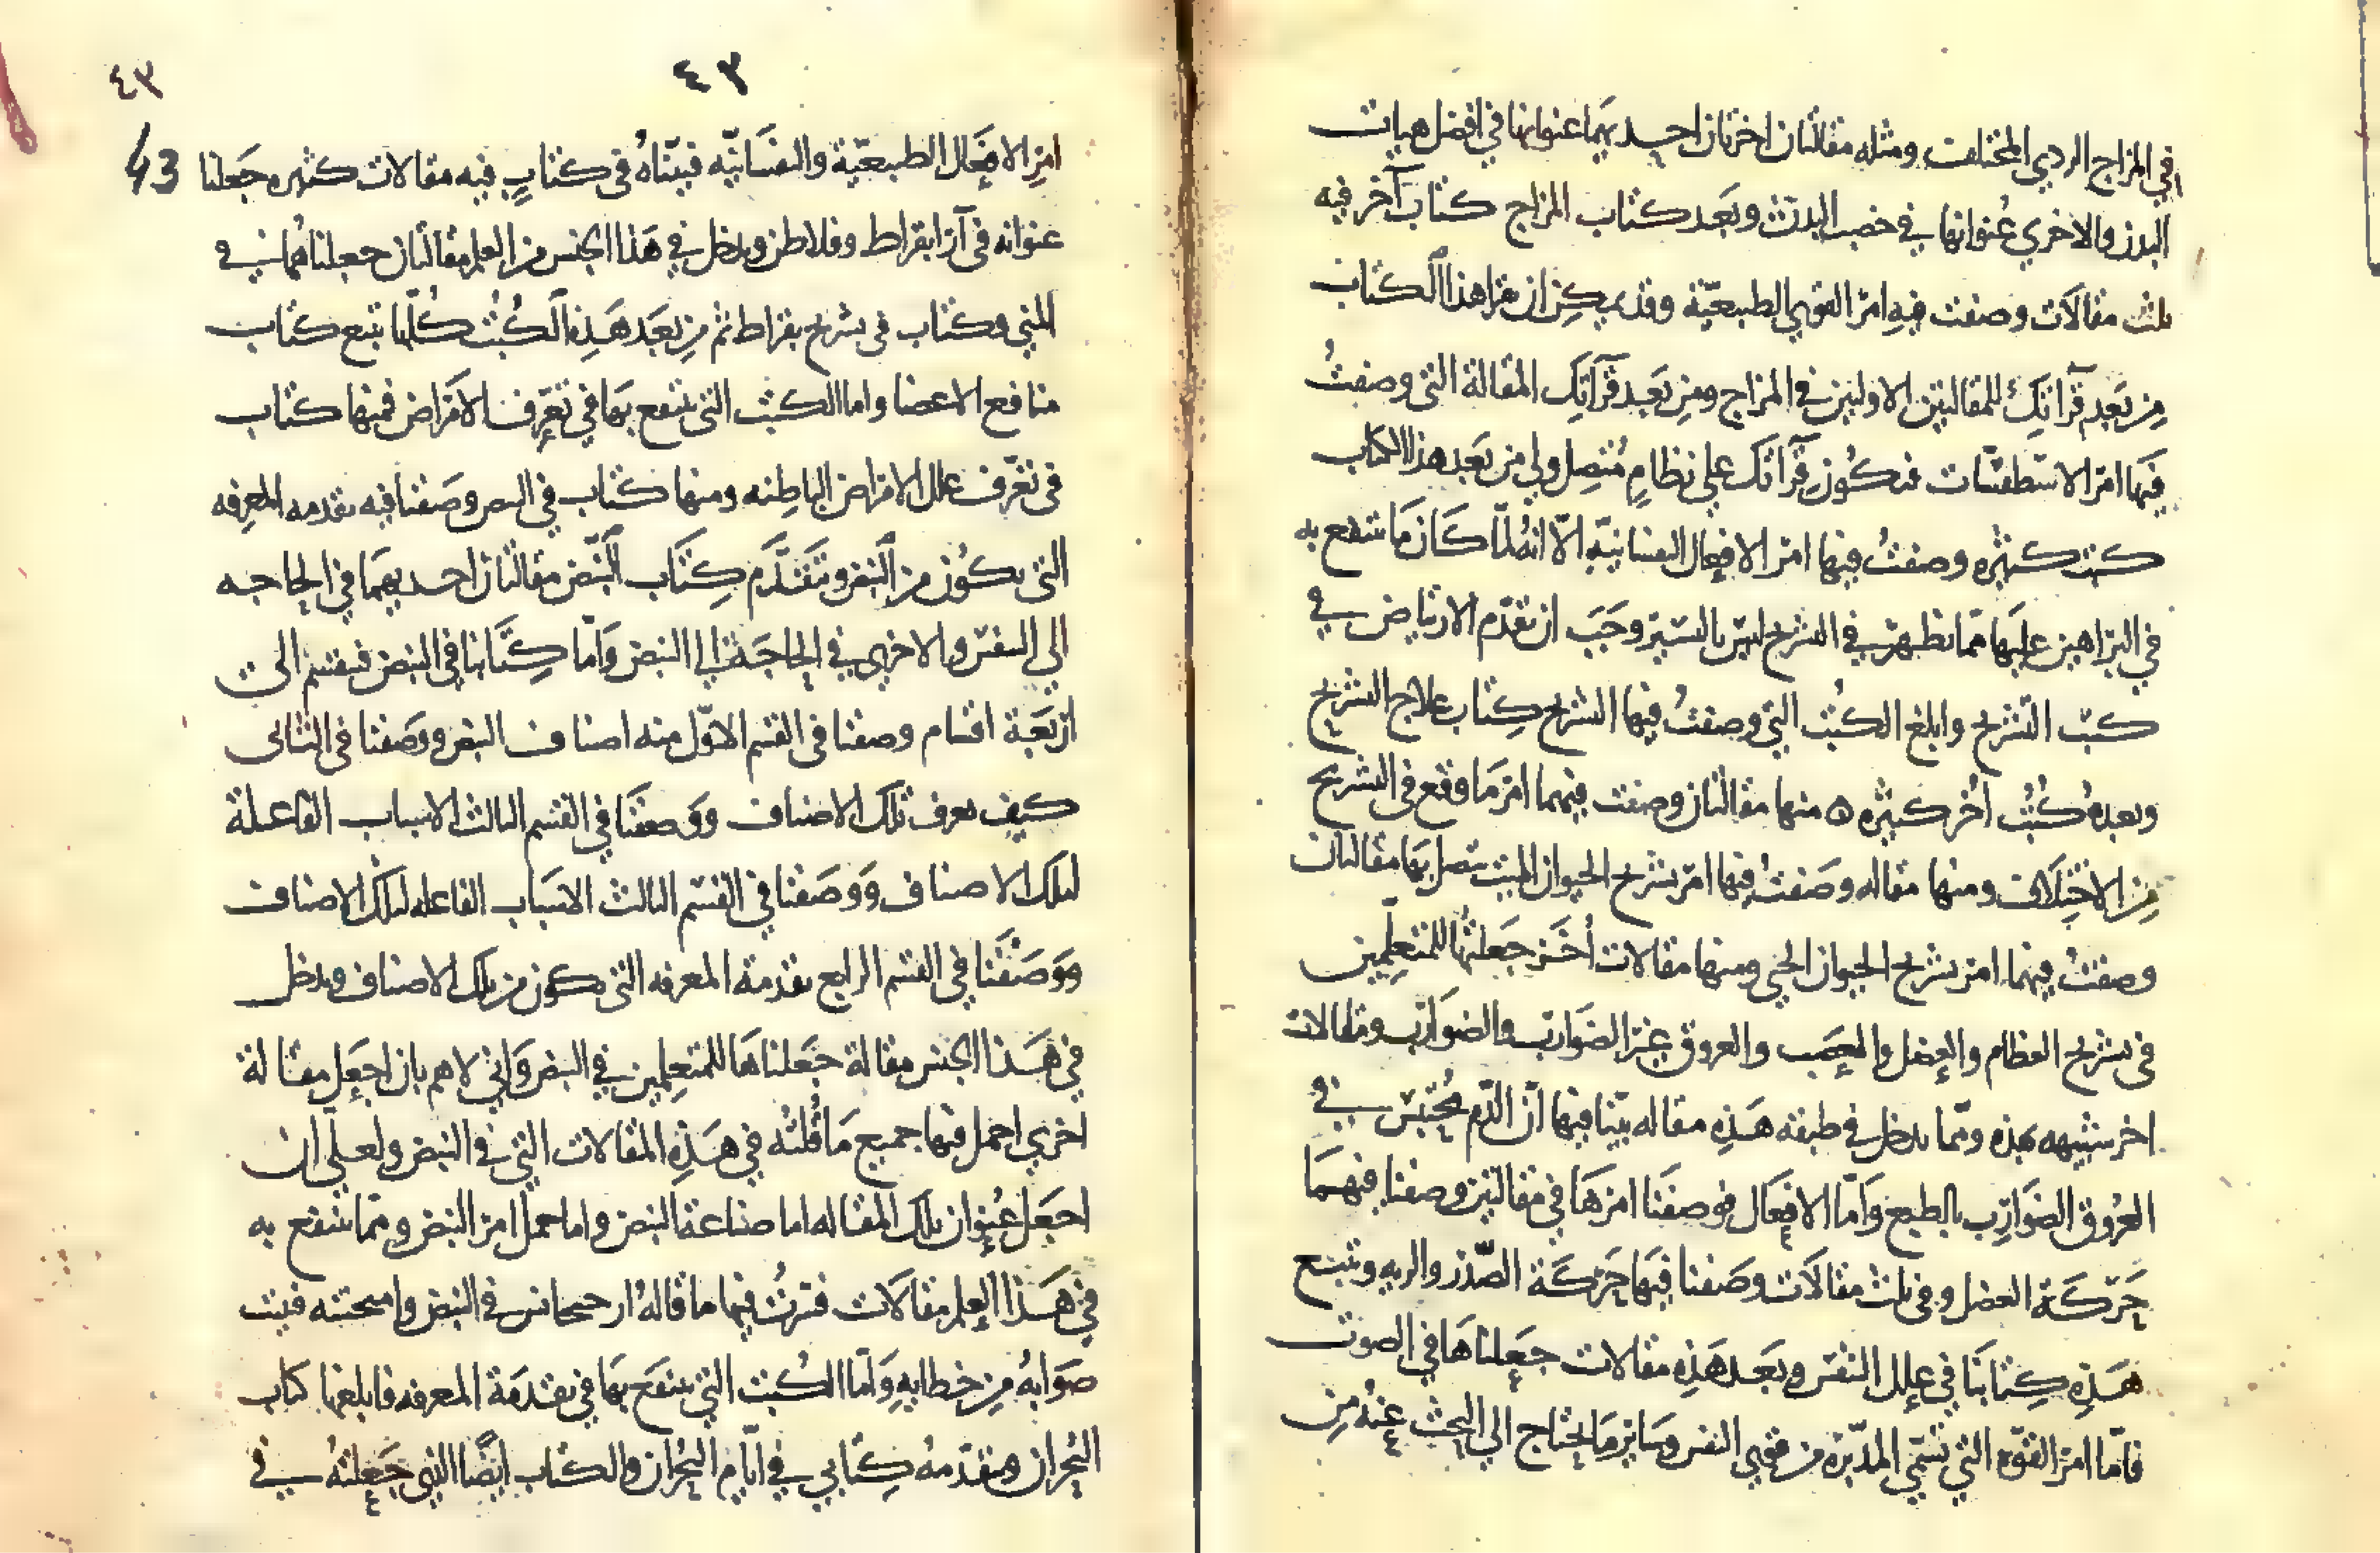 في المزاج الردي المختلف ومثله مقالتان اخرتان احديهما عنوانها في افضل هيات
البدن والاخري عنوانها في خصب البدن وبعد كتاب المزاج كتاب آخر فيه
ثلث مقالات وصفت فيه امر القوي الطبيعية وقد يمكن ان تقرا هذا الكتاب
من بعد قرآتك للمقالتين الاولتين في المزاج ومن بعد قرآتك المقالة التي وصفت
فيها امر الاسطقسات فتكون قرآتك علي نظام متصل ولي من بعد هذا الكتاب
كتب كثيره وصفت فيها امر الافعال النفسانية الا انه لما كان ما ينتفع به
في البراهين عليها مما يظهر في التشريح ليس باليسير وجب ان تقدم الارتياض في
كتب التشريح وابلغ الكتب التي وصفت فيها التشريح كتاب علاج التشريح
وبعده كتب اخر كثيره ٥ منها مقالتان وصفت فيهما امر ما وقع في التشريح
من الاختلاف ومنها مقاله وصفت فيها امر تشريح الحيوان الميت يتصل بها مقالتان
وصفت فيهما امر تشريح الحيوان الحي ومنها مقالات اخر جعلتها للمتعلمين
في تشريح العظام والعضل والعصب والعروق غير الضوارب والضوارب ومقالات
اخر شبيهه بهذه ومما يدخل في طبقه هذه مقاله بينا فيها ان الدم محتبس في
العروق الضوارب بالطبع واما الافعال فوصفنا امرها في مقالتين وصفنا فيهما
حركة العضل وفي ثلث مقالات وصفنا فيها حركة الصدر والريه وتتبع
هذه كتابنا في علل النفس وبعد هذه مقالات جعلناها في الصوت
فاما امر القوة التي تسمي المدبرة من قوي النفس وساير ما يحتاج الي البحث عنه من
٤٣
٤٣
43
امر الافعال الطبيعية والنفسانيه فبيناه في كتاب فيه مقالات كثيره جعلنا
عنوانه في آرا بقراط وفلاطن ويدخل في هذا الجنس من العلم مقالتان جعلناهما في
المني وكتاب في تشريح بقراط ثم من بعد هذه الكتب كلها تتبع كتاب
منافع الاعضا واما الكتب التي ينتفع بها في تعرف الامراض فمنها كتاب
في تعرف علل الامراض الباطنه ومنها كتاب في النبض وصفنا فيه تقدمه المعرفه
التي تكون من النبض ويتقدم كتاب النبض مقالتان احديهما في الحاجه
الي التنفس والاخري في الحاجة الي النبض واما كتابنا في النبض فينقسم الي
اربعة اقسام وصفنا في القسم الاول منه اصناف النبض ووصفنا في الثاني
كيف تعرف تلك الاصناف ووصفنا في القسم الثالث الاسباب الفاعلة
لتلك الاصناف ووصفنا في القسم الثالث الاسباب الفاعله لتلك الاصناف
ووصفنا في القسم الرابع تقدمة المعرفه التي تكون من تلك الاصناف ويدخل
في هذا الجنس مقالة جعلناها للمتعلمين في النبض واني لاهم بان اجعل مقالة
اخري اجمل فيها جميع ما قلته في هذه المقالات التي في النبض ولعلي ان
اجعل عنوان تلك المقاله اما صناعة النبض واما جمل امر النبض ومما ينتفع به
في هذا العلم مقالات فسرت فيها ما قاله ارحيجانس في النبض وامتحنته فبينت
صوابه من خطايه واما الكتب التي ينتفع بها في تقدمة المعرفه فابلغها كتاب
البحران ويتقدمه كتابي في ايام البحران والكتاب ايضا الذي جعلته في